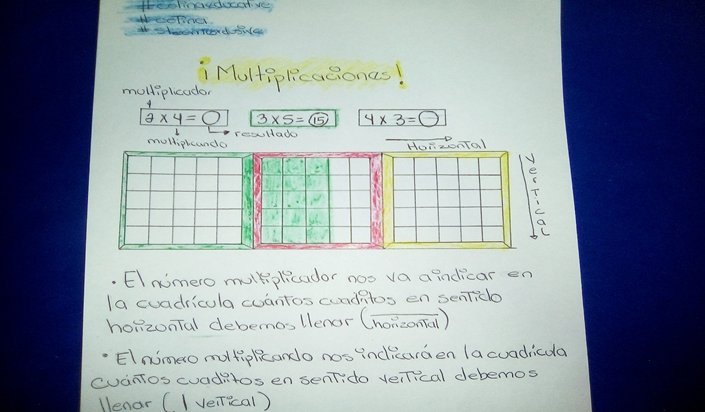 #colinaeducativa
#colina
# steam
¡Multiplicaciones!
multiplicador
2 x 4 =
3 x 5 = 15
4 x 3 =
resultado
multiplicando
Horizontal
Vertical
• El número multiplicador nos va a indicar en
la cuadrícula cuántos cuaditos en sentido
horizontal debemos llenar (horizontal)
• El número multiplicando nos indicará en la cuadrícula
cuántos cuaditos en sentido vertical debemos
llenar ( | vertical)